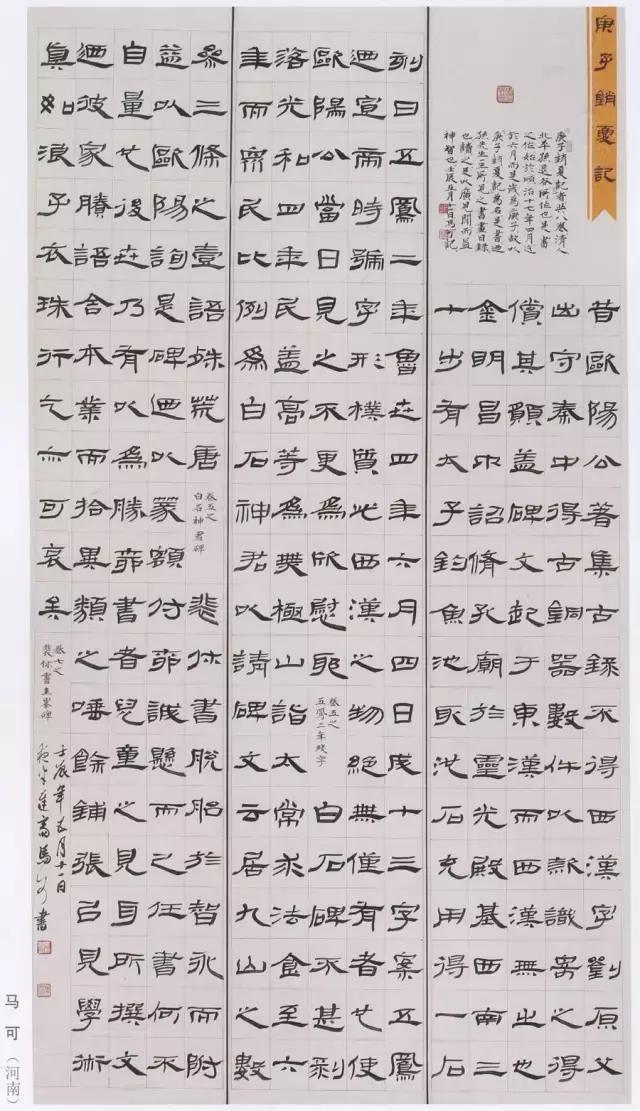 庚子銷夏記
庚子銷夏記者凡八卷清人
北平孫退谷所作也是書
之作始於順治十七年四月迄
於六月而是歲為庚子故以
庚子銷夏記為名是書迺
孫先生之所見之書畫目錄
也讀之足以廣見聞而益
神智也壬辰五月十一日馬可記
昔歐陽公著集古錄不得西漢字劉原父
出守秦中得古銅器數件以款識寄之得
償其願蓋碑文起于東漢而西漢無之也
金明昌中詔脩孔廟於靈光殿基西南三
十步有太子釣魚池取池石充用得一石
刻曰五鳳二年魯卅四年六月四日成十三字案五鳳
迺宣帝時號字形樸質此西漢之物絕無僅有者也使
歐陽公當日見之不更為所慰耶
卷五之
五鳳二年殘字
白石碑不甚剝
落光和四年民蓋高等為無極山詣太常求法食至六
年而常民比例為白石神君以請碑文云居九山之數
參三條之壹語殊荒唐
卷五之
白石神君碑
裴休書脫胎於智永而附
益以歐陽詢是碑迺以篆額付柳誠懸而己任書何不
自量也後世乃有以為勝柳書者兒童之見耳所撰文
迺彼家賸語舍本業而拾異類之唾餘鋪張己見學術
真如浪子衣珠行乞亦可哀矣
卷七之
裴休書圭峯碑
壬辰年五月十一日
馬可書
马可（河南）